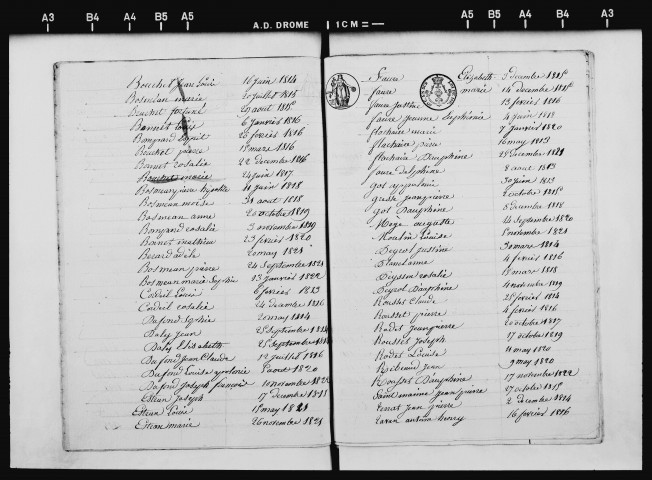 A3 B4 A4 B5 A5 A.D. DROME 1CM A5 B5 A4 B4 A3
Bouchet jean Louis 16 juin 1814
Bosmean marie 20 juillet 1815
Bouchet fortuné 29 aout 1815
Bonnet 6 janvier 1816
Bongrand 20 fevrier 1816
Bouchet pierre mars 1816
Bonnet rosalie 22 decembre 1816
Bouchet marie 24 juin 1817
hypolite 11 juin 1818
Bosmean moïse 31 aout 1818
Bosmean anne 20 octobre 1819
Bongrand rosalie 3 novembre 1819
Bonnet mathieu 23 fevrier 1820
Berard adèle 20 may 1821
Bosmean pierre 24 septembre 1821
Bosmean marie Sophie 13 janvier 1822
Cordeil Louis 6 fevrier 1813
Cordeil rosalie 24 decembre 1816
Dufond Sophie 20 may 1814
Daly jean 25 septembre 1814
Daly Elisabeth 25 septembre
Dufond jean Claude 12 juillet 1816
Dufond Louise 8 aout 1820
Dufond joseph françois 10 novembre 1822
Estran joseph 17 decembre 1818
Estran Louis 15 may 1821
Estran marie 26 novembre 1821
Faure Elizabeth 3 decembre 1815
faure marie 14 decembre 1815
faure justine 13 fevrier 1816
faure jeanne Delphinie 4 juin 1818
flachaire marie 7 janvier 1820
flachaire pierre 16 may 1813
flachaire Dauphine 28 decembre 1821
faure delphine 8 aout 1813
got appolonie 30 juin 1813
jean pierre 2 octobre 1815
got Dauphine 5 decembre 1818
auguste 14 septembre 1820
Moulin Louise 5 novembre 1821
Peyrol justine 30 mars 1814
anne 4 fevrier 1816
Peysson rosalie 15 mars 1818
Peyrol Dauphine 4 novembre 1819
Rousset Claude 25 fevrier 1814
Rousset pierre 4 fevrier 1816
Rodet jean pierre 20 octobre 1817
Rousset joseph 17 octobre 1819
Rodet Louise 11 may 1820
jean 9 may 1820
Rousset Dauphine 17 novembre 1822
jean pierre 27 octobre 1815
jean pierre 2 decembre 1814
henry 16 fevrier 1816